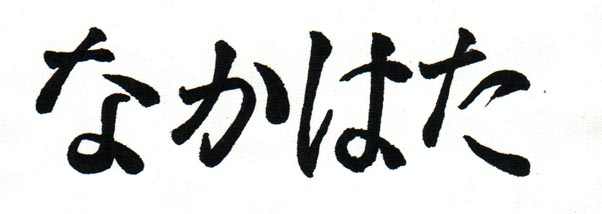 なかはた